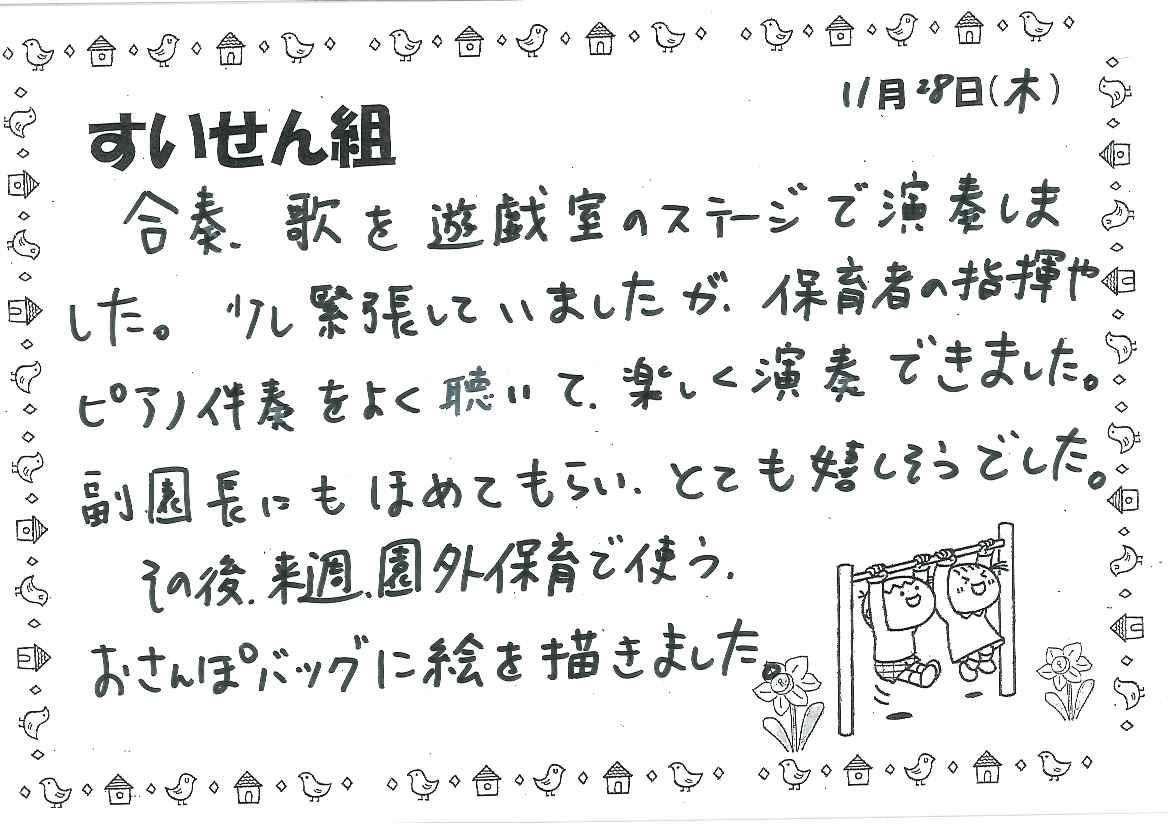 11月28日(木)
すいせん組
合奏、歌を遊戯室のステージで演奏しま
した。少し緊張していましたが、保育者の指揮や
ピアノ伴奏をよく聴いて、楽しく演奏できました。
副園長にもほめてもらい、とても嬉しそうでした。
その後、来週、園外保育で使う、
おさんぽバッグに絵を描きました。